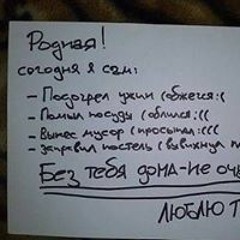 Родная!
сегодня я сам:
- Подогрел ужин (обжегся:(
- Помыл посуду (облился:((
- Вынес мусор (просыпал:(((
- заправил постель (вывихнул п
Без тебя дома-не оч
ЛЮБЛЮ Т